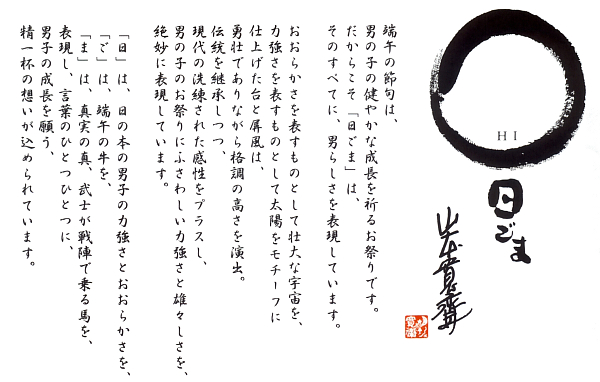 HI
日ごま
端午の節句は、
男の子の健やかな成長を祈るお祭りです。
だからこそ「日ごま」は、
そのすべてに、男らしさを表現しています。
おおらかさを表すものとして壮大な宇宙を、
力強さを表すものとして太陽をモチーフに
仕上げた台と屏風は、
勇壮でありながら格調の高さを演出。
伝統を継承しつつ、
現代の洗練された感性をプラスし、
男の子のお祭りにふさわしい力強さと雄々しさを、
絶妙に表現しています。
「日」は、日の本の男子の力強さとおおらかさを、
「ご」は、端午の午を、
「ま」は、真実の真、武士が戦陣で乗る馬を、
表現し、言葉のひとつひとつに、
男子の成長を願う、
精一杯の想いが込められています。